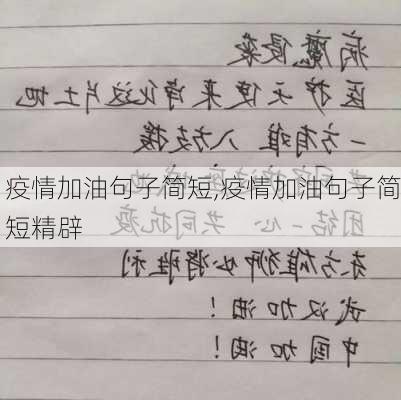 病魔侵袭
医护天使来净化这片土地
一方有难 八方支援
疫情加油句子简短,疫情加油句子简
短精辟
团结一心 共同抗疫
东方雄狮必将胜利
武汉加油！
中国加油！